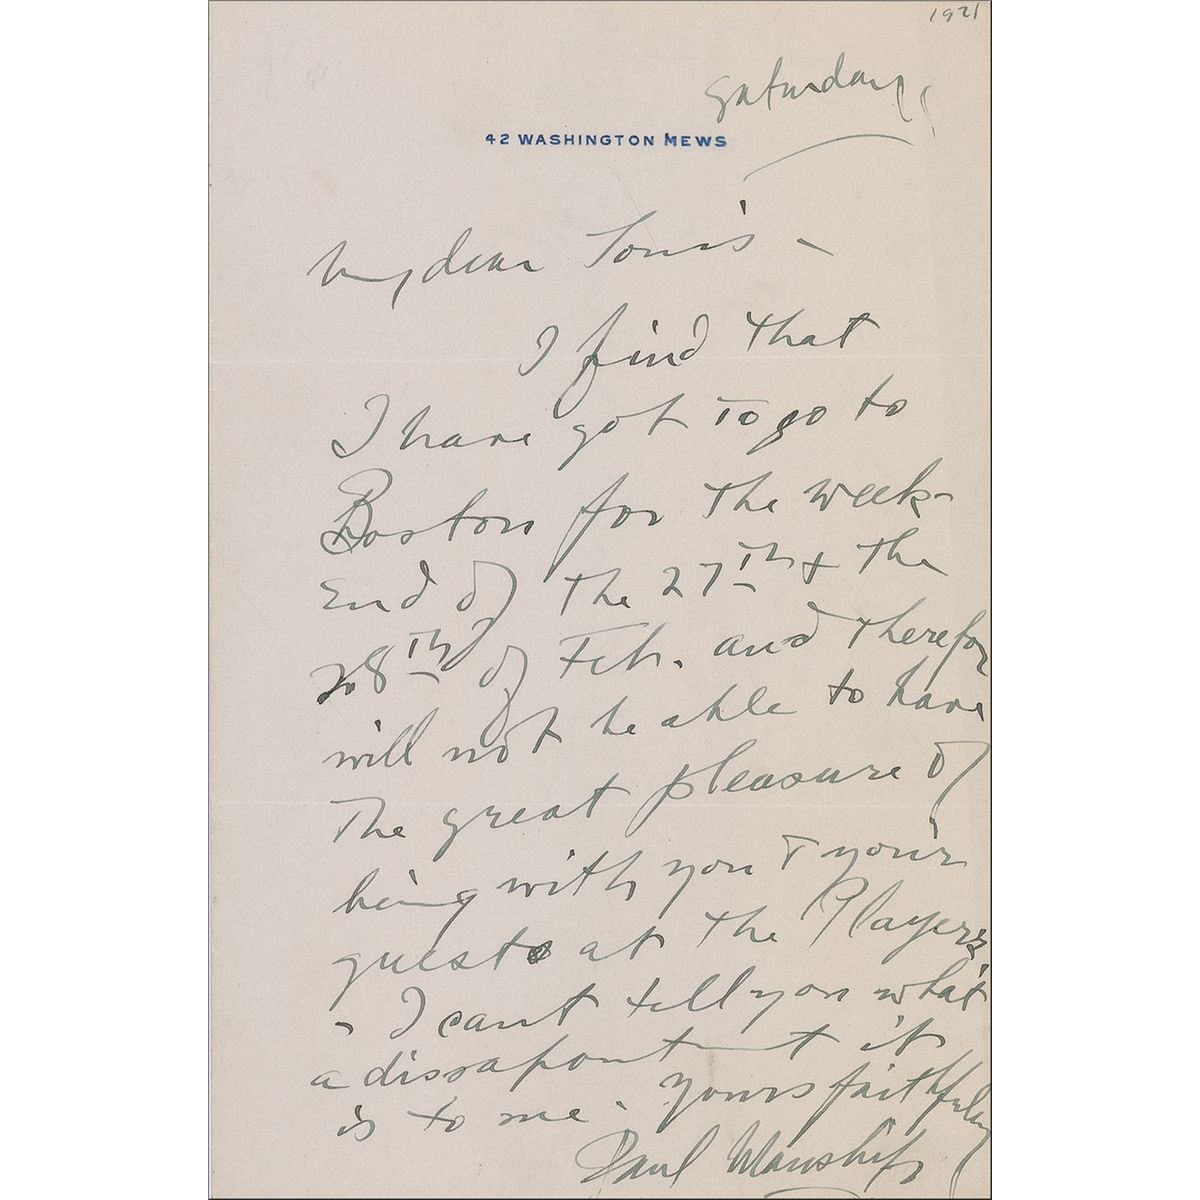 1921
Saturday,
42 WASHINGTON MEWS
My dear Louis –
I find that
I have got to go to
Boston for the week-
End of the 27th & the
28th of Feb. and therefor
will not be able to have
the great pleasure of
being with you & your
guests at the Players
- I cant tell you what
a dissapointment it
is to me. Yours faithfully
Paul Manship